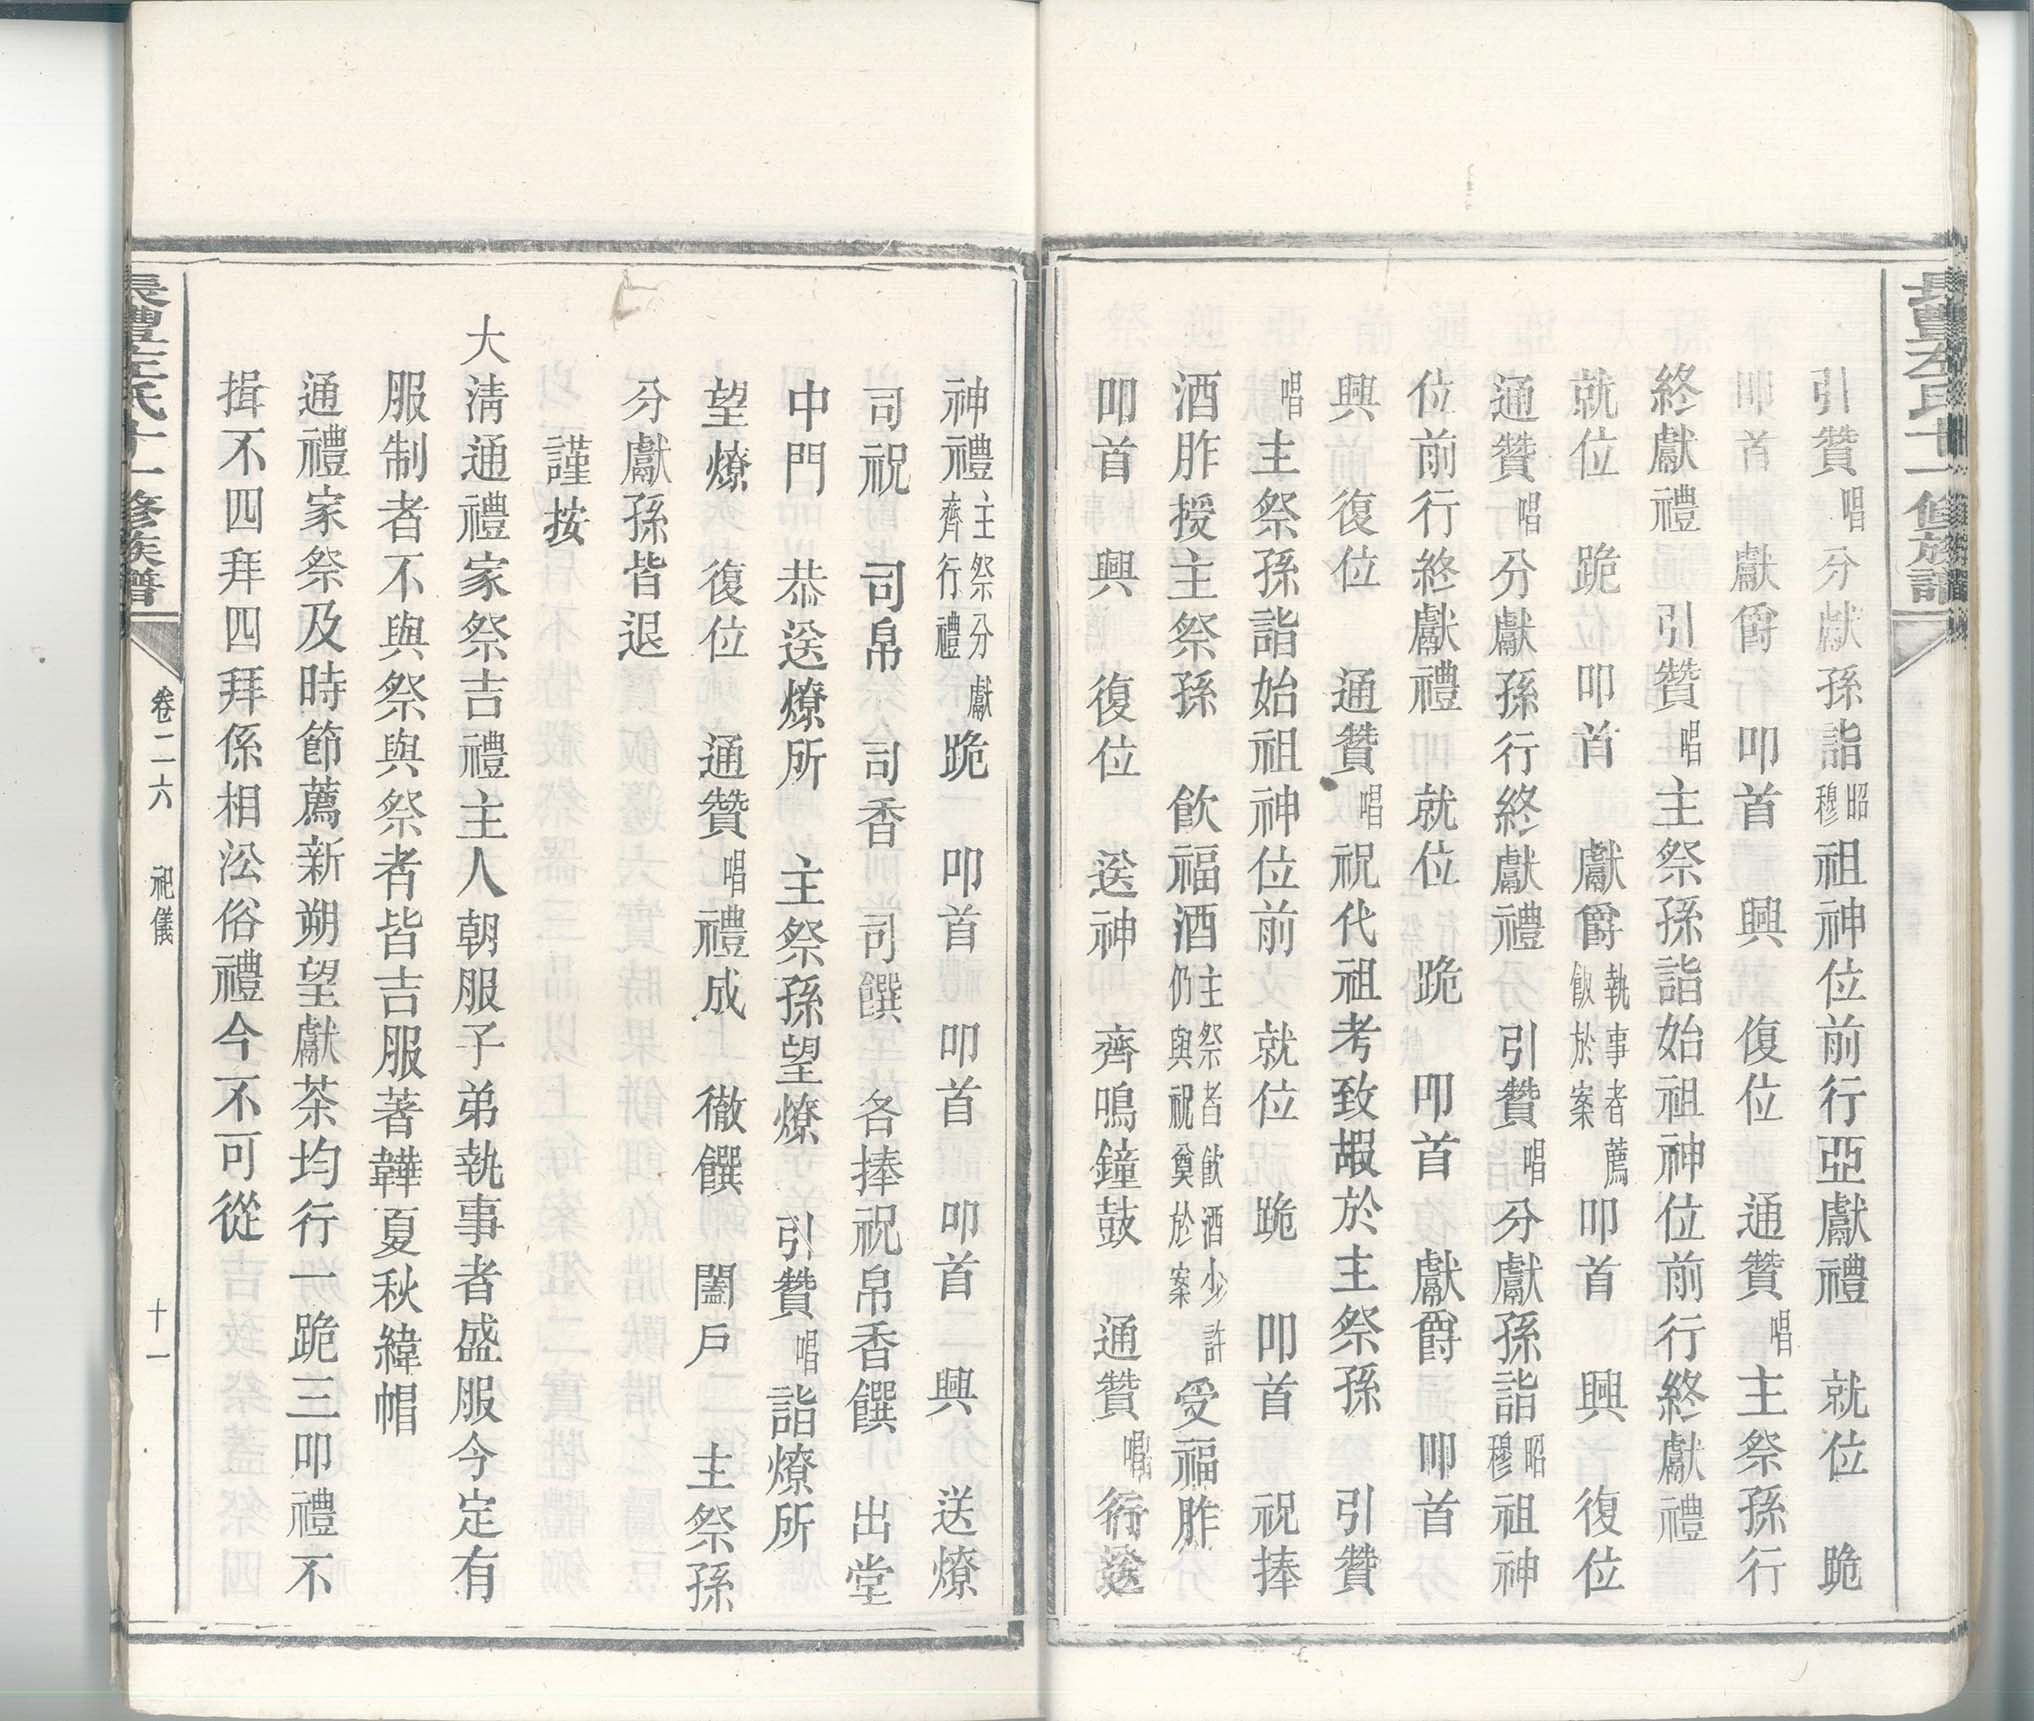 引贊唱分獻孫詣昭穆祖神位前行亞獻禮　就位　跪
叩首　獻爵　叩首　興　復位　通贊唱主祭孫行
終獻禮　引贊唱主祭孫詣始祖神位前行終獻禮
就位　跪　叩首　獻爵執事者薦飯於案　叩首　興　復位
通贊唱分獻孫行終獻禮　引贊唱分獻孫詣昭穆祖神
位前行終獻禮　就位　跪　叩首　獻爵　叩首
興　復位　通贊唱祝代祖考致嘏於主祭孫　引贊
唱主祭孫詣始祖神位前　就位　跪　叩首　祝捧
酒胙授主祭孫　飲福酒主祭者飲酒少許仍與祝奠於案　受福胙
叩首　興　復位　送神　齊鳴鐘鼓　通贊唱行送
神禮主祭分獻齊行禮　跪　叩首　叩首　叩首　興　送燎
司祝　司帛　司香　司饌　各捧祝帛香饌　出堂
中門　恭送燎所　主祭孫望燎　引贊唱詣燎所
望燎　復位　通贊唱禮成　徹饌　闔戶　主祭孫
分獻孫皆退
謹按
大清通禮家祭吉禮主人朝服子弟執事者盛服今定有
服制者不與祭與祭者皆吉服著韡夏秋緯帽
通禮家祭及時節薦新朔望獻茶均行一跪三叩禮不
揖不四拜四拜係相沿俗禮今不可從
氏十一修族譜
卷二六　祀儀　十一